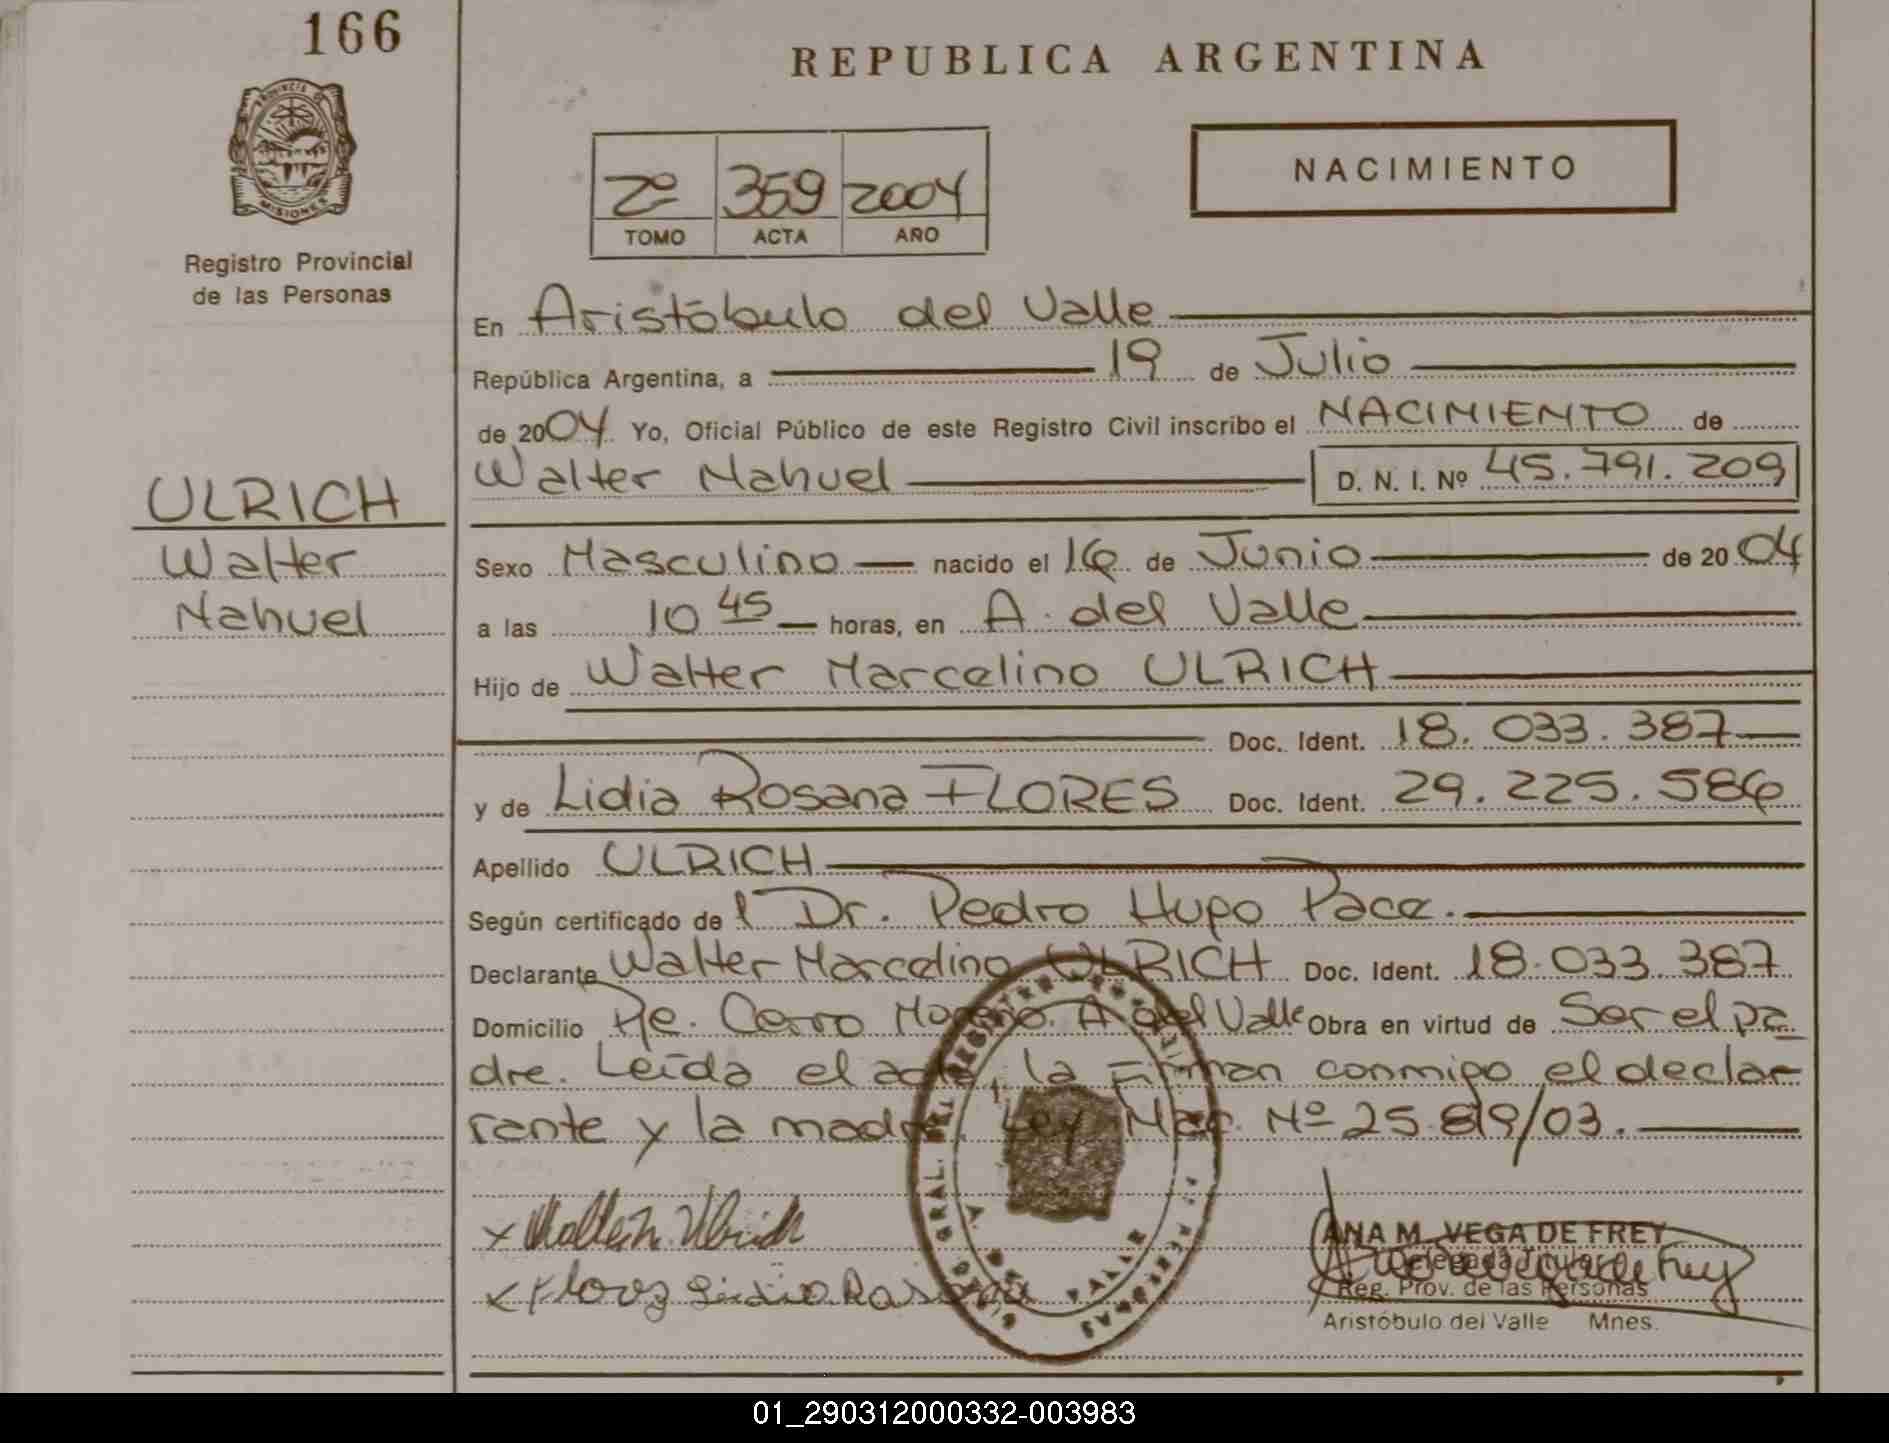 166
PROVINCIA DE
MISIONES
Registro Provincial
de las Personas
ULRICH
Walter
Nahuel
REPUBLICA ARGENTINA
2º 359 2004
TOMO ACTA AÑO
NACIMIENTO
En Aristóbulo del Valle
República Argentina, a 19 de Julio
de 2004 Yo, Oficial Público de este Registro Civil inscribo el NACIMIENTO de
Walter Nahuel D. N. I. Nº 45.791.209
Sexo Masculino nacido el 16 de Junio de 2004
a las 10 45 horas, en A. del Valle
Hijo de Walter Marcelino ULRICH
Doc. Ident. 18.033.387
y de Lidia Rosana FLORES Doc. Ident. 29.225.586
Apellido ULRICH
Según certificado del Dr. Pedro Hugo Pace.
Declarante Walter Marcelino ULRICH Doc. Ident. 18.033.387
Domicilio Pje. Cerro Moreno. A del Valle Obra en virtud de Ser el pa
dre. Leída el acta, la Firman conmigo el decla-
rante y la madre. Ley Nac. Nº 25.819/03.
x Walter M. Ulrich
x Flores Lidia Rosana
ANA M. VEGA DE FREY
Delegada Titular
Reg. Prov. de las Personas
Aristóbulo del Valle Mnes.
01_290312000332-003983